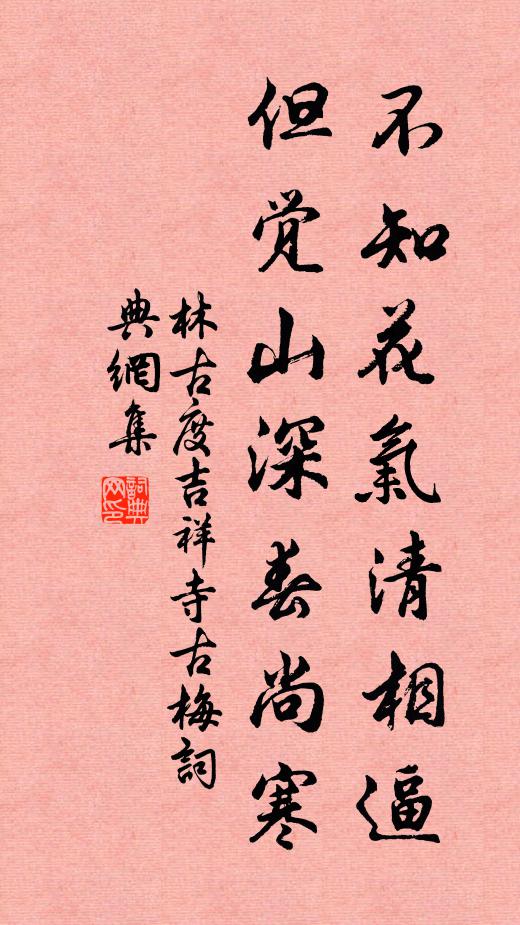 不知花氣清相逼
但覺山深春尚寒
林古度吉祥寺古梅詞
典網集
詞典網印